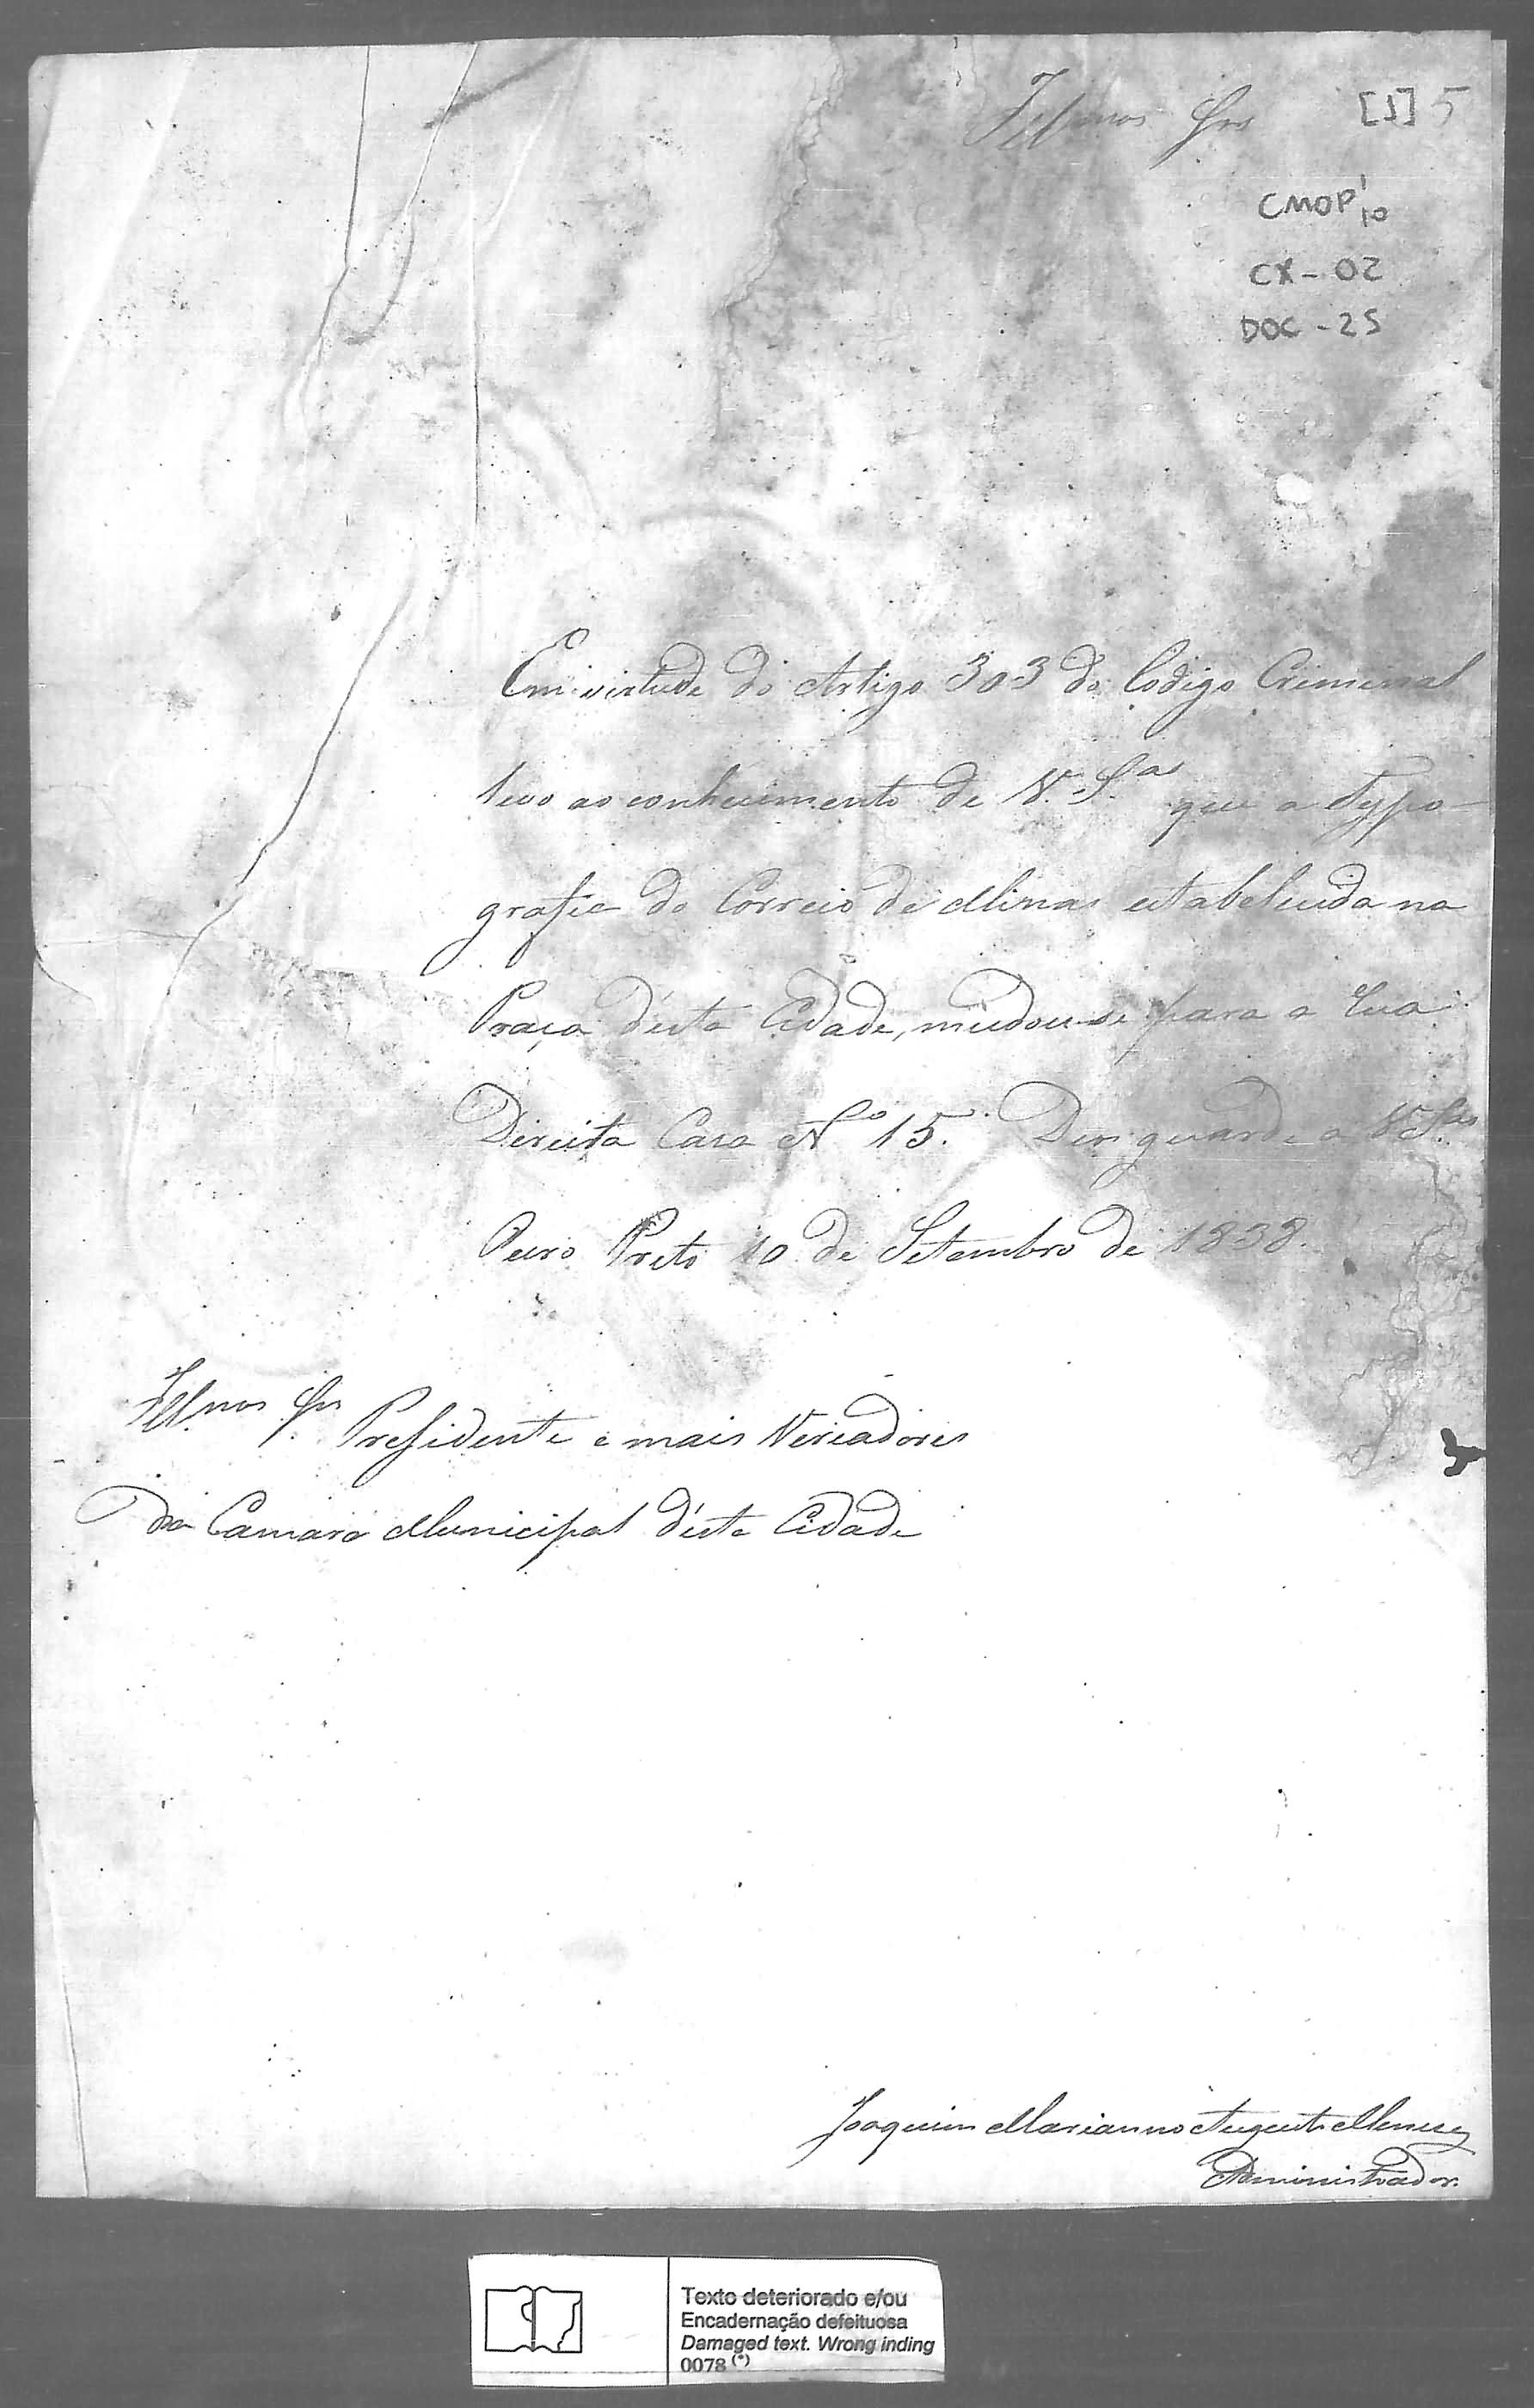 Illmos Snrs
[1] 5
CMOP 1/10
CX - 02
DOC - 25
Em virtude do Artigo 303 do Codigo Criminal
levo ao conhecimento de V. S.as que a Typo-
grafia do Correio de Minas estabelecida na
Praça d'esta Cidade, mudou-se para a rua
Direita Casa No 15. Deos guarde a V. S.as
Ouro Preto 10 de Setembro de 1838.
Illmos Snrs Presidente e mais Vereadores
da Camara Municipal d'esta Cidade
Joaquim Marianno Augusto Menezes
Administrador.
Texto deteriorado e/ou
Encadernação defeituosa
Damaged text. Wrong inding
0078 (*)